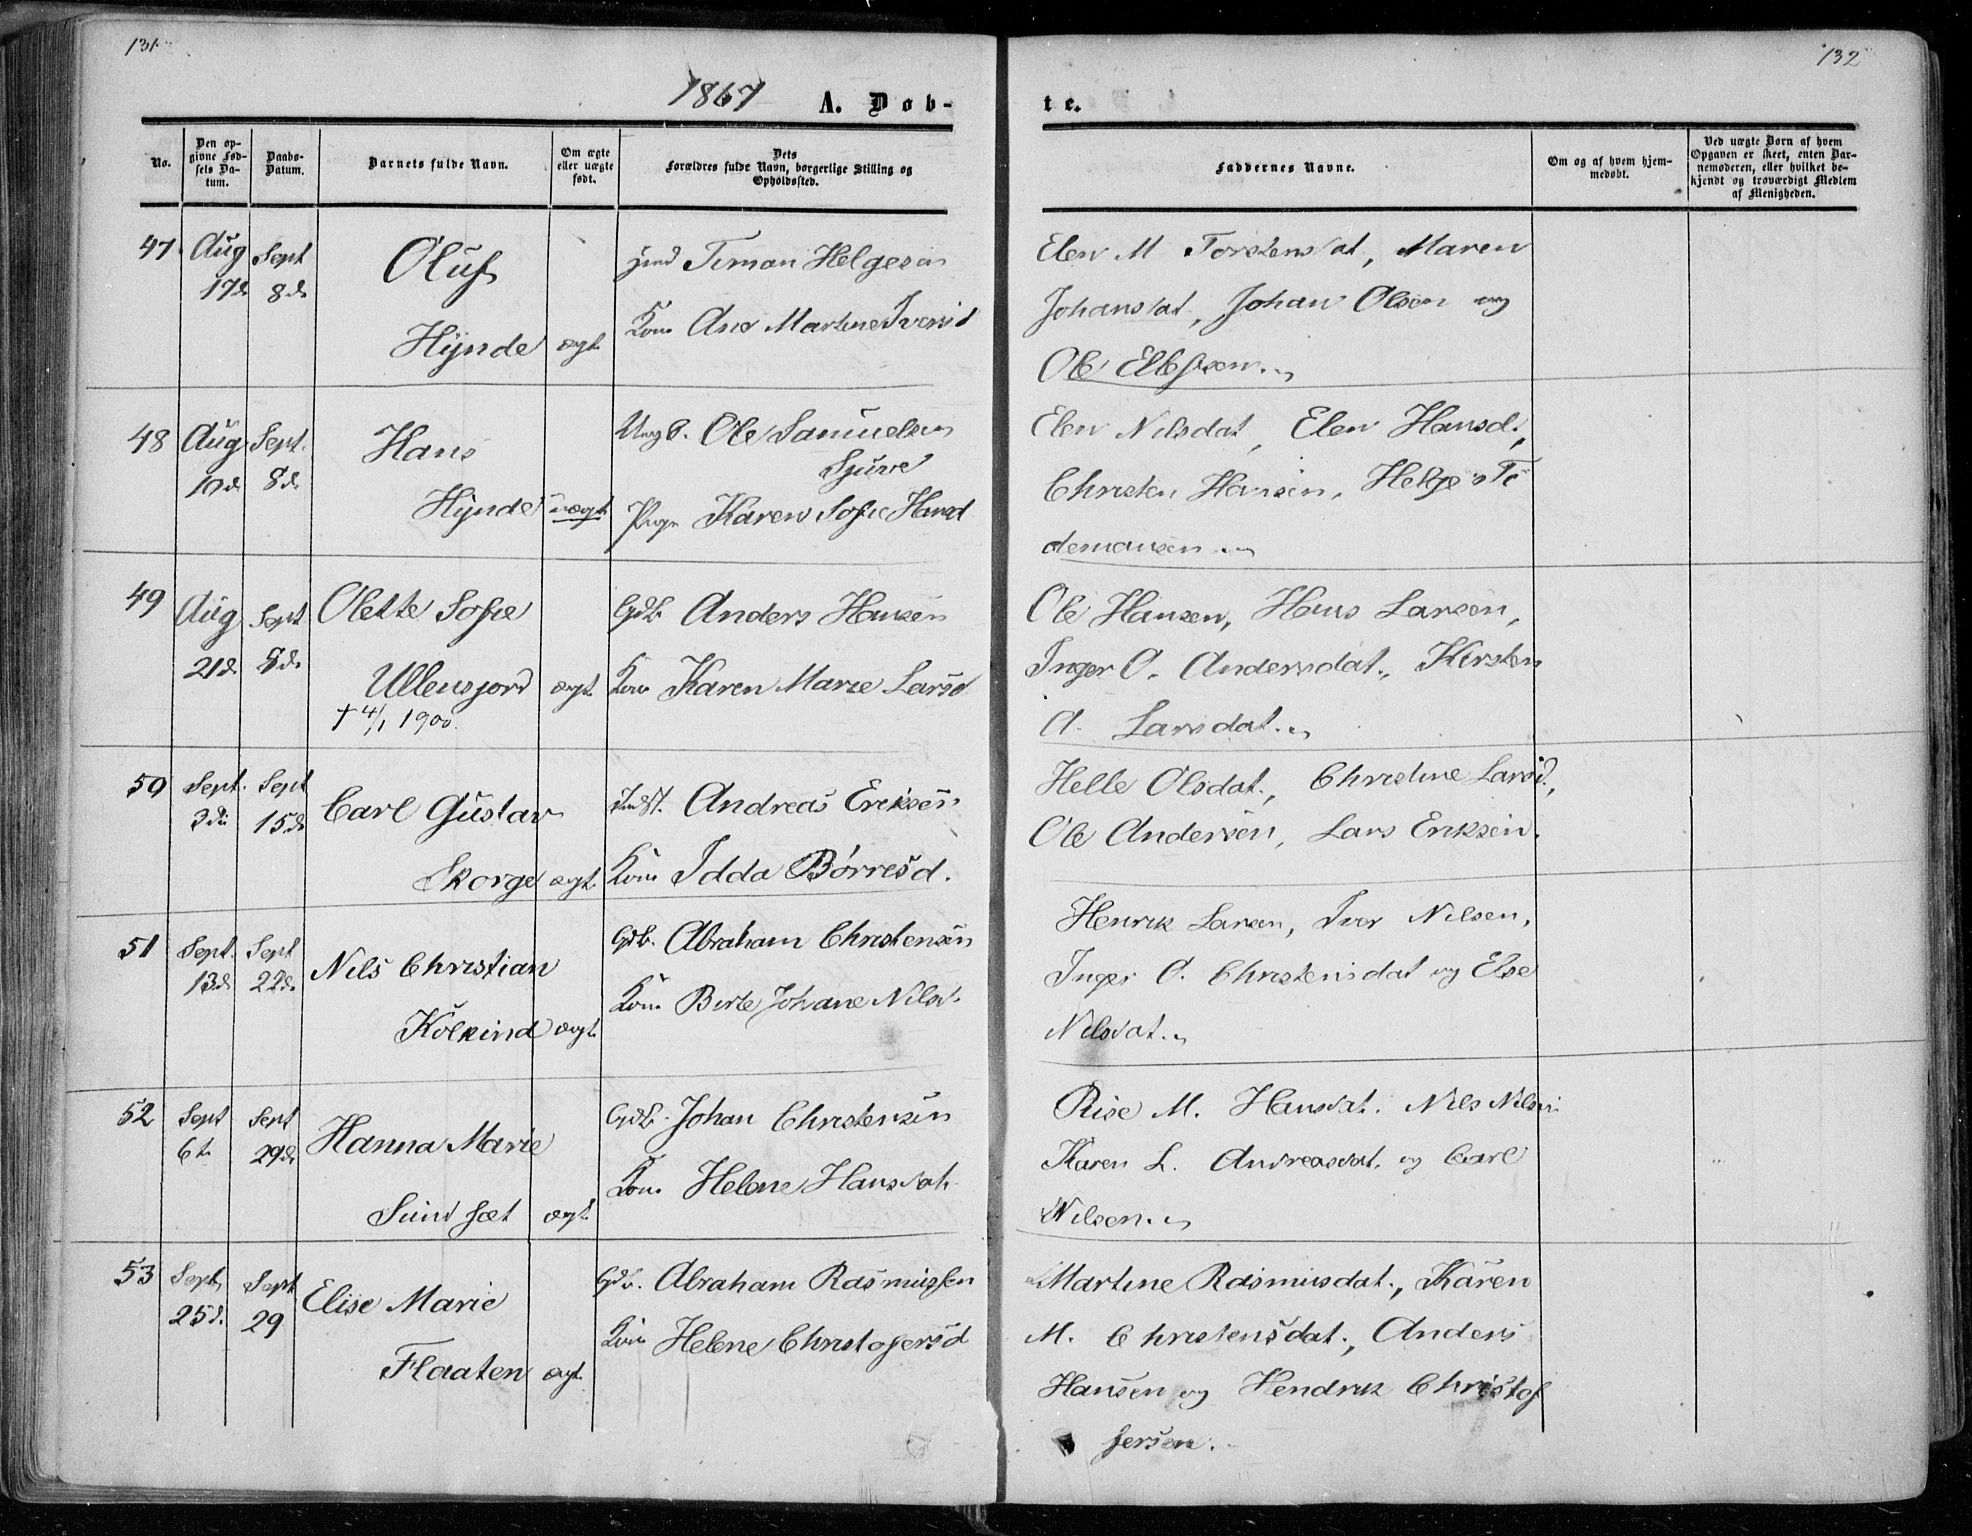 131
132
1867 A. Døb-
te.
No.
Den op-
givne Fød-
sels Da-
tum.
Daabs-
Datum.
Barnets fulde Navn.
Om ægte
eller uægte
født.
Dets
Forældres fulde Navn, borgerlige Stilling og
Opholdssted.
Faddernes Navne.
Om og af hvem hjem-
medøbt.
Ved uægte Børn af hvem
Opgaven er skeet, enten Bar-
nemoderen, eller hvilket be-
kjendt og troværdigt Medlem
af Menigheden.
47 Aug Sept Oluf Timan Helgesen
17d 8d Kone Ane Martine Iversd
Hynde ægt.
Elen M Torstensdat, Maren
Johansdat, Johan Olsen og
Ole Ellefsen.
48 Aug Sept. Hans Ungk. Ole Samuelsen
Sjuve
10d 8d Hynde uægt. Pige Karen Sofie Hansd
Elen Nilsdat, Elen Hansd.,
Christen Hansen, Helge Ti
demansen
49 Aug Sept Olette Sofie Gdb Anders Hansen
21d. 8d. Ullensjord ægt. Kone Karen Marie Larsd
† 4/1 1900.
Ole Hansen, Hans Larsen,
Inger O. Andersdat., Kirsten
A. Larsdat.
50 Sept. Sept Carl Gustav Indst. Andreas Eriksen
3d 15d Skorge ægt. Kone Idda Børresd.
Helle Olsdat., Christine Larsd.,
Ole Andersen, Lars Eriksen.
51 Sept. Sept Nils Christian Gdb. Abraham Christensen
13d. 22d. Kolkind ægt. Kone Berte Johane Nilsd.
Henrik Larsen, Iver Nilsen,
Inger O. Christensdat og Else
Nilsdat.
52 Sept Sept Hanna Marie Gdb. Johan Christensen
6t. 29d. Sundsæt ægt. Kone Helene Hansdat.
Rise M. Hansdat. Nils Nilsen
Karen L. Andreasdat. og Carl
Nilsen.
53 Sept, Sept Elise Marie Gdb. Abraham Rasmussen
25d. 29 Flaaten ægt. Kone Helene Christofersd
Martine Rasmusdat., Karen
M. Christensdat., Anders
Hansen og Hendrik Christof
fersen.